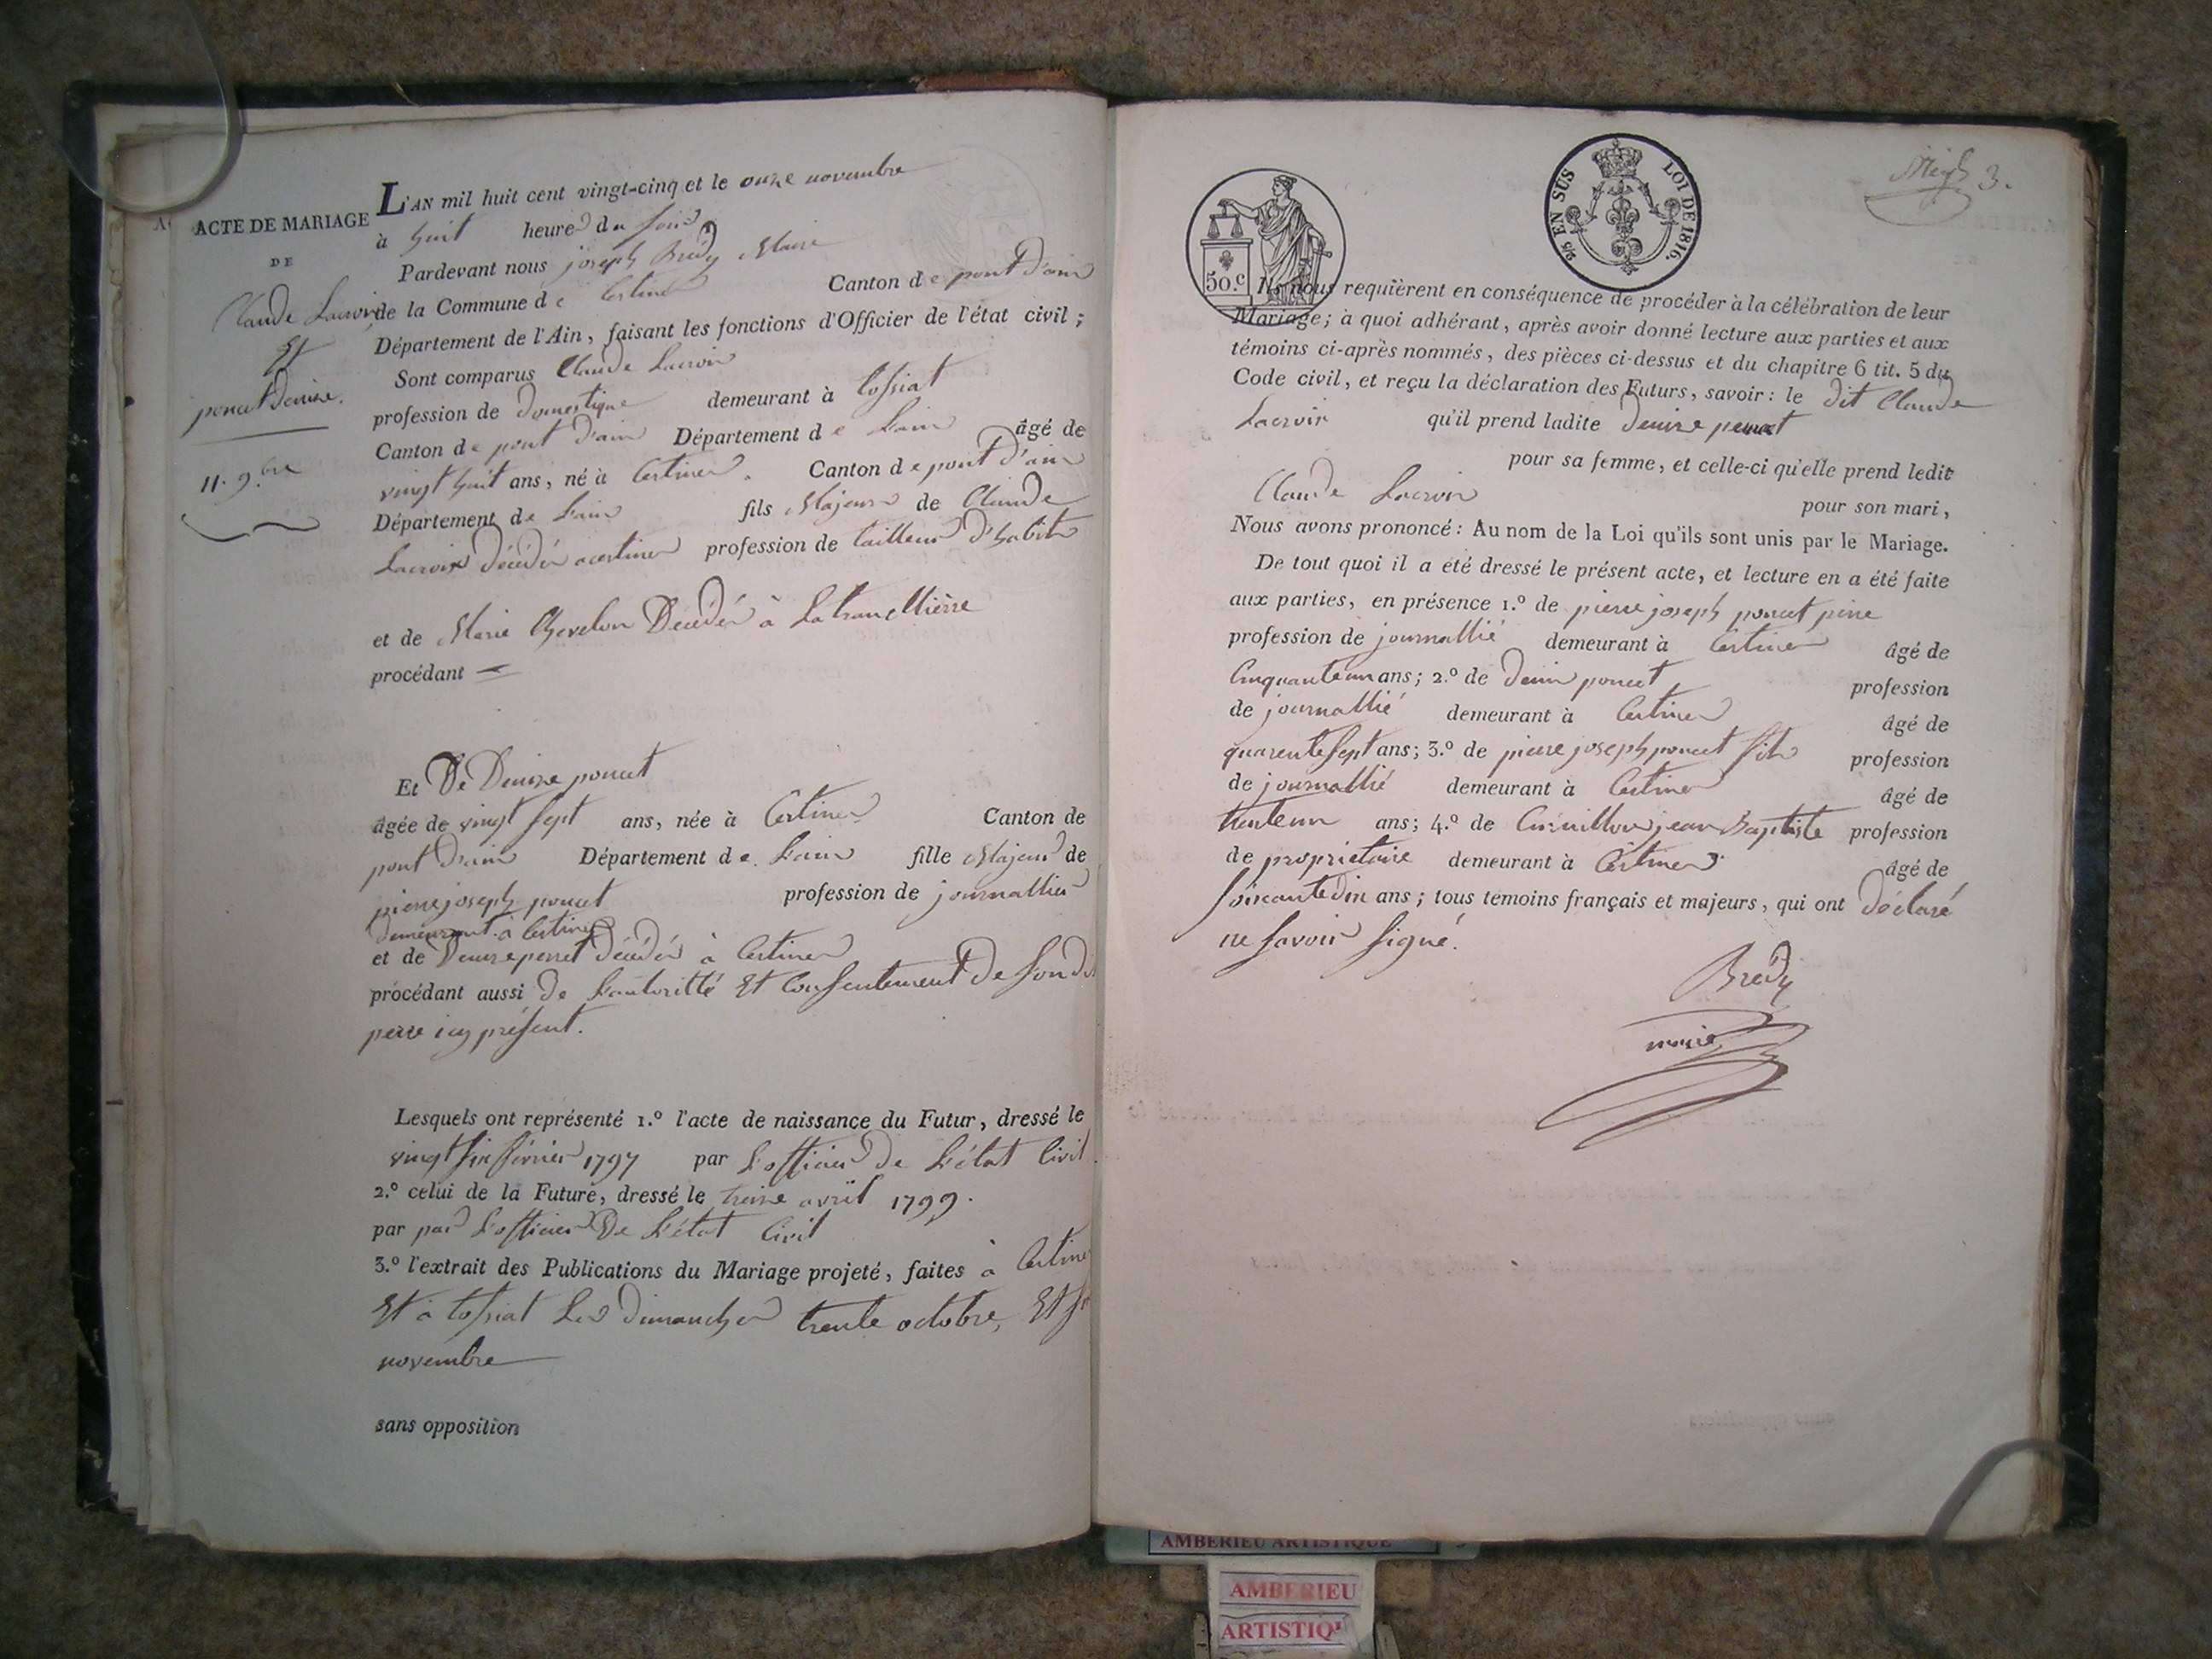 ACTE DE MARIAGE
DE
Claude Lacroix
Et
poncet Denise.
11. 9.bre
L'AN mil huit cent vingt-cinq et le onze novembre
à huit heures du soir
Pardevant nous joseph Bredy Maire
de la Commune de Certines Canton de pont d'ain
Département de l'Ain, faisant les fonctions d'Officier de l'état civil;
Sont comparus Claude Lacroix
profession de domestique demeurant à tossiat
Canton de pont d'ain Département de L'ain âgé de
vingt huit ans, né à Certines. Canton de pont d'ain
Département de L'ain fils Majeur de Claude
Lacroix décédé a certines profession de tailleur d'habits
et de Marie Chevelon Décédé à Latrancllière
procédant
Et De Denise poncet
âgée de vingt sept ans, née à Certines Canton de
pont d'ain Département de L'ain fille Majeur de
pierre joseph poncet profession de journallier
demeurant à Certines
et de Denise perret décédé à Certines
procédant aussi De L'autoritté Et Consentement De son dit
perre icy présent.
Lesquels ont représenté 1.º l'acte de naissance du Futur, dressé le
vingt six févriér 1797 par L'officier De L'état Civil.
2.º celui de la Future, dressé le treize avril 1799.
par par L'officier De L'état Civil
3.º l'extrait des Publications du Mariage projeté, faites à Certines
Et à tossiat Les dimanches trente octobre, Et
novembre
sans opposition
50.c
EN SUS
LOI DE 1816.
3.
Ils nous requièrent en conséquence de procéder à la célébration de leur
Mariage; à quoi adhérant, après avoir donné lecture aux parties et aux
témoins ci-après nommés, des pièces ci-dessus et du chapitre 6 tit. 5 du
Code civil, et reçu la déclaration des Futurs, savoir: le dit Claude
Lacroix qu'il prend ladite Denise poncet
pour sa femme, et celle-ci qu'elle prend ledit
Claude Lacroix pour son mari,
Nous avons prononcé: Au nom de la Loi qu'ils sont unis par le Mariage.
De tout quoi il a été dressé le présent acte, et lecture en a été faite
aux parties, en présence 1.º de pierre joseph poncet perre
profession de journallié demeurant à Certines âgé de
Cinquante un ans; 2.º de Denis poncet profession
de journallié demeurant à Certines âgé de
quarente sept ans; 3.º de pierre joseph poncet fils profession
de journallié demeurant à Certines âgé de
trente un ans; 4.º de jean Baptiste profession
de proprietaire demeurant à Certines âgé de
soixante dix ans; tous témoins français et majeurs, qui ont déclaré
ne savoir signé.
Bredy
maire
AMBERIEU ARTISTIQUE
AMBERIEU
ARTISTIQ